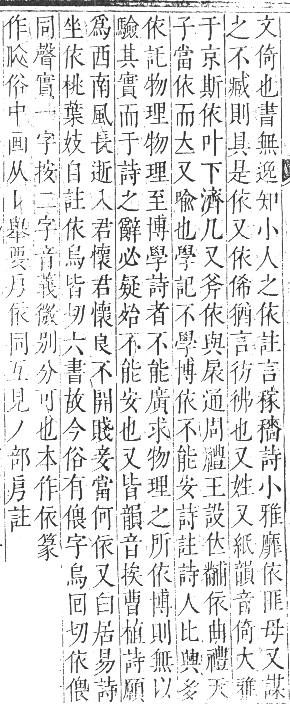 文倚也書無逸知小人之依註言稼穡詩小雅靡依匪母又謀
之不臧則具是依又依俙猶言彷彿也又姓又紙韻音倚大雅
于京斯依叶下濟几又斧依與扆通周禮王設黼依曲禮天
子當依而立又喻也學記不學博依不能安詩註詩人比興多
依託物理物理至博學詩者不能廣求物理之所依博則無以
驗其實而于詩之辭必疑殆不能安也又皆韻音挨曹植詩願
爲西南風長逝入君懷君懷良不開賤妾當何依又白居易詩
坐依桃葉妓自註依烏皆切六書故今俗有偎字烏回切依偎
同聲實一字按二字音義微別分可也本作依篆
作俗中画从舉要㐆依同互見丿部㐆註